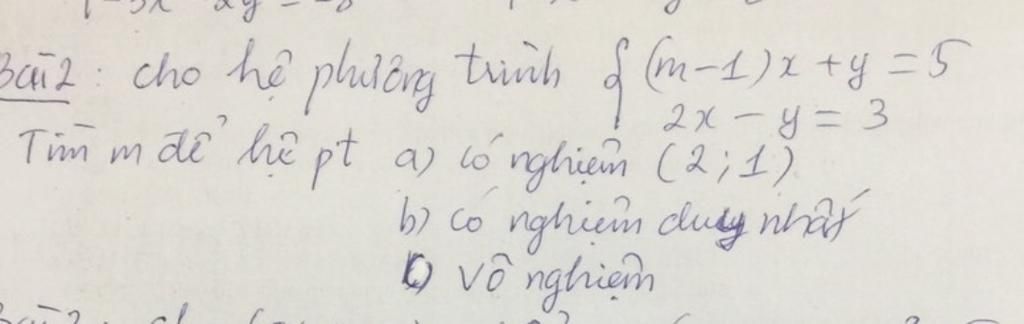 Bài 2: cho hệ phương trình { (m-1)x + y = 5
2x - y = 3
Tìm m để hệ pt a) có nghiệm (2; 1)
b) có nghiệm duy nhất
c) vô nghiệm